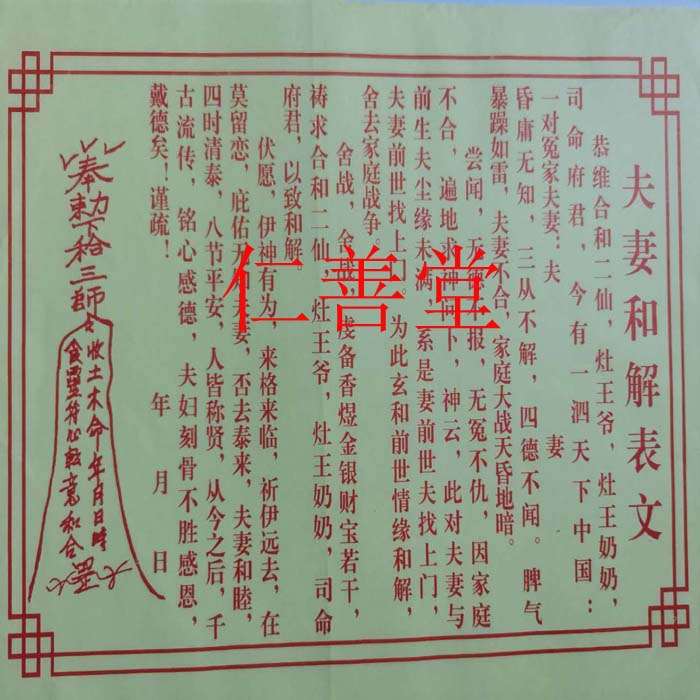 夫妻和解表文
恭维合和二仙，灶王爷，灶王奶奶，
司命府君，今有一泗天下中国：
一对冤家夫妻：夫 妻
昏庸无知，三从不解，四德不闻。脾气
暴躁如雷，夫妻不合，家庭大战天昏地暗。
尝闻，无德不报，无冤不仇，因家庭
不合，遍地求神问卜，神云，此对夫妻与
前生夫尘缘未满，系是妻前世夫找上门，
夫妻前世找上门。为此玄和前世情缘和解，
舍去家庭战争。
舍战，虔备香煜金银财宝若干，
祷求合和二仙，灶王爷，灶王奶奶，司命
府君，以致和解。
伏愿，伊神有为，来格来临，祈伊远去，在
莫留恋，庇佑夫妻，否去泰来，夫妻和睦，
四时清泰，八节平安，人皆称贤，从今之后，千
古流传，铭心感德，夫妇刻骨不胜感恩，
戴德矣！谨疏！
年 月 日
奉勅下 三師
收土木命年月日時
食靈符心 意和合
仁善堂